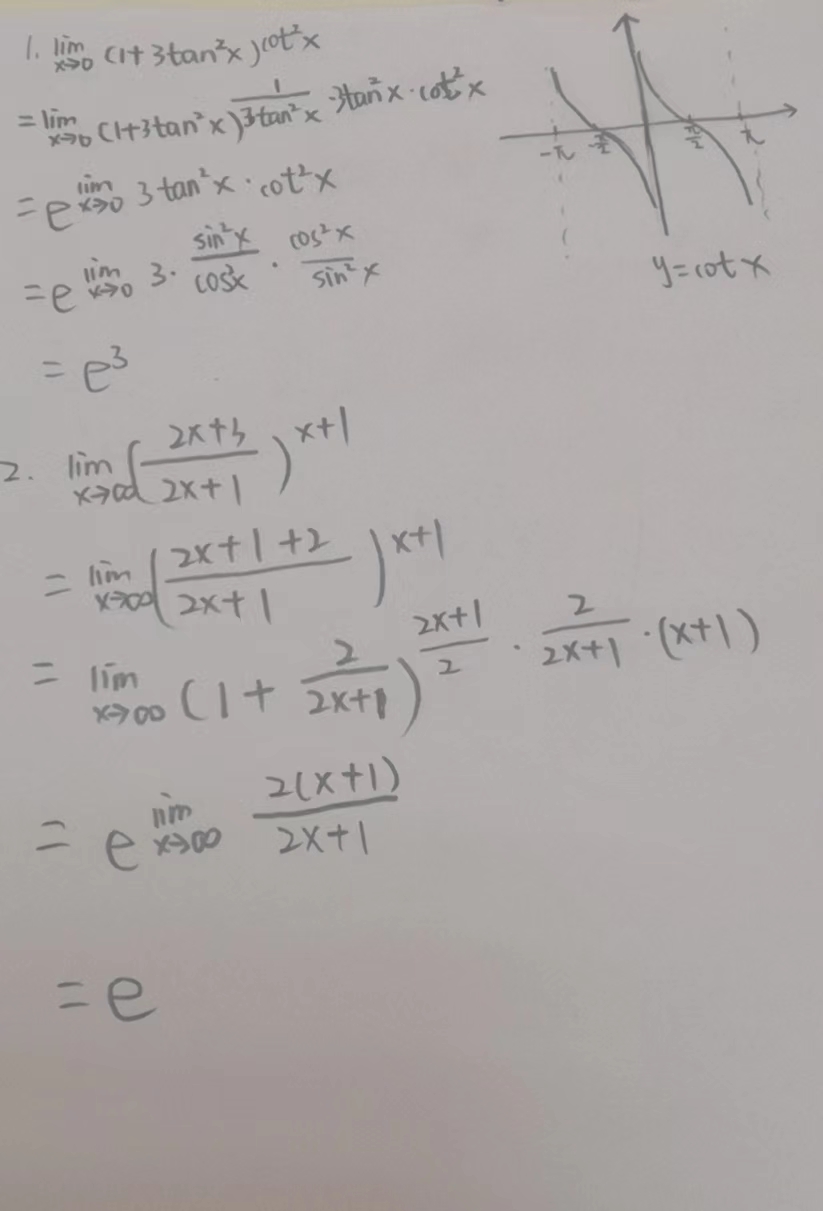 1. lim x→0 (1+3tan²x)^cot²x
= lim x→0 (1+3tan²x)^(1/(3tan²x) · 3tan²x · cot²x)
= e^(lim x→0 3tan²x · cot²x)
= e^(lim x→0 3 · sin²x/cos²x · cos²x/sin²x)
= e³
-π -π/2 π/2 π
y=cot x
2. lim x→∞ ((2x+3)/(2x+1))^(x+1)
= lim x→∞ ((2x+1+2)/(2x+1))^(x+1)
= lim x→∞ (1+2/(2x+1))^((2x+1)/2 · 2/(2x+1) · (x+1))
= e^(lim x→∞ 2(x+1)/(2x+1))
= e